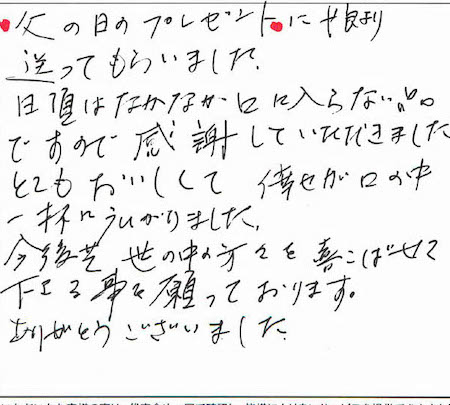 父の日のプレゼントに娘より
送ってもらいました。
日頃はなかなか口に入らない品。
ですので感謝していただきました
とてもおいしくて 倖せが口の中
一杯にひろがりました。
今後共 世の中の方々を喜こばせて
下さる事を願っております。
ありがとうございました